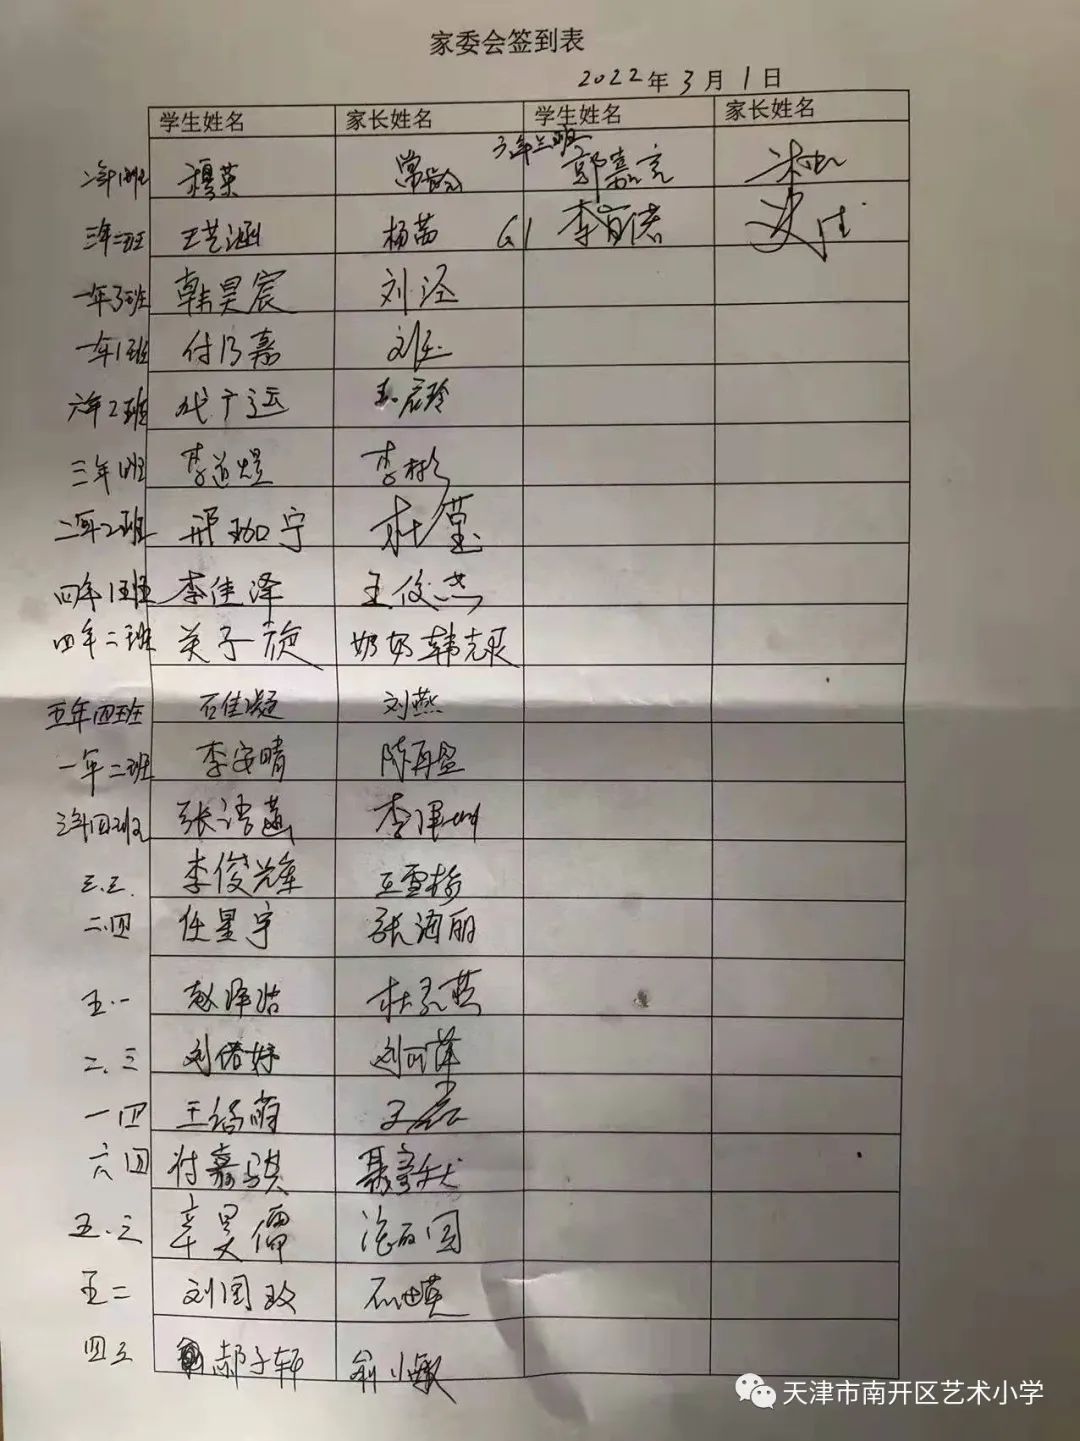 家委会签到表
2022年3月1日
学生姓名 家长姓名 学生姓名 家长姓名
二年1班 穆英 常 六年三班 郭嘉亮
三年二班 王艺涵 杨茜 6.1 李 史
一年3班 韩昊宸 刘泾
一年1班 付乃嘉 刘
六年2班 代广运 玲
三年1班 李道煜 李彬
二年2班 邢珈宁 杜莹
四年1班 李佳泽 王俊杰
四年二班 关子旋 奶奶韩
五年四班 石佳凝 刘燕
一年二班 李安晴 陈再盈
三年四班 张语菡 李
三.三. 李俊辉 王雪梅
二.四 任星宇 张海丽
五.一 赵泽浩 杜 英
二.三 刘偌妤 刘 萍
一四 王 萌 王磊
六四 付嘉骐 聂彦秋
五.三 辛昊儒 国
五二 刘国玫 石 英
四三 郝子轩 俞小敏
天津市南开区艺术小学